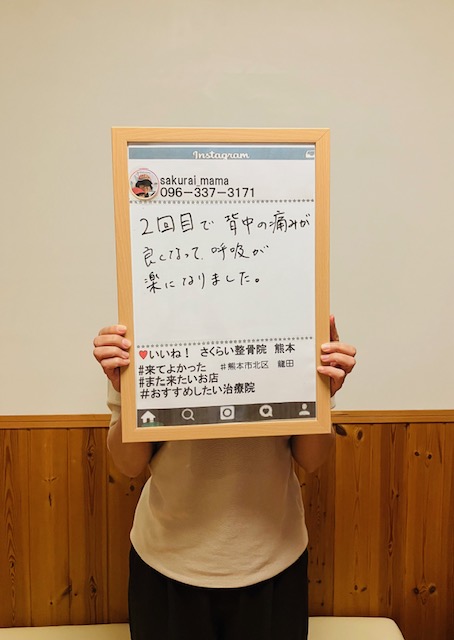 Instagram
sakurai_mama
096-337-3171
2回目で背中の痛みが
良くなって、呼吸が
楽になりました。
❤いいね! さくらい整骨院 熊本
#来てよかった #熊本市北区 龍田
#また来たいお店
#おすすめしたい治療院